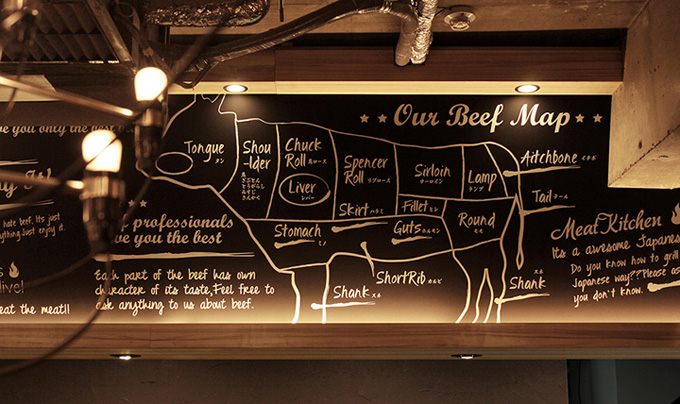 Our Beef Map
ve you only the best
hate beef. Its just
anything. Just enjoy it.
live!
eat the meat!!
professionals
ve you the best
Each part of the beef has own
character of its taste, Feel free to
ask anything to us about beef.
Tongue
タン
Shou
-lder
Chuck
Roll 肩ロース
Liver
レバー
Spencer
Roll リブロース
Skirt ハラミ
Sirloin
サーロイン
Fillet ヒレ
Lamp
ランプ
Round
モモ
Stomach ミノ
Guts ホルモン
ShortRib カルビ
Shank スネ
Shank
スネ
Aitchbone イチボ
Tail テール
MeatKitchen
Its a awesome Japanese
Do you know how to grill
Japanese way??Please as
you don't know.